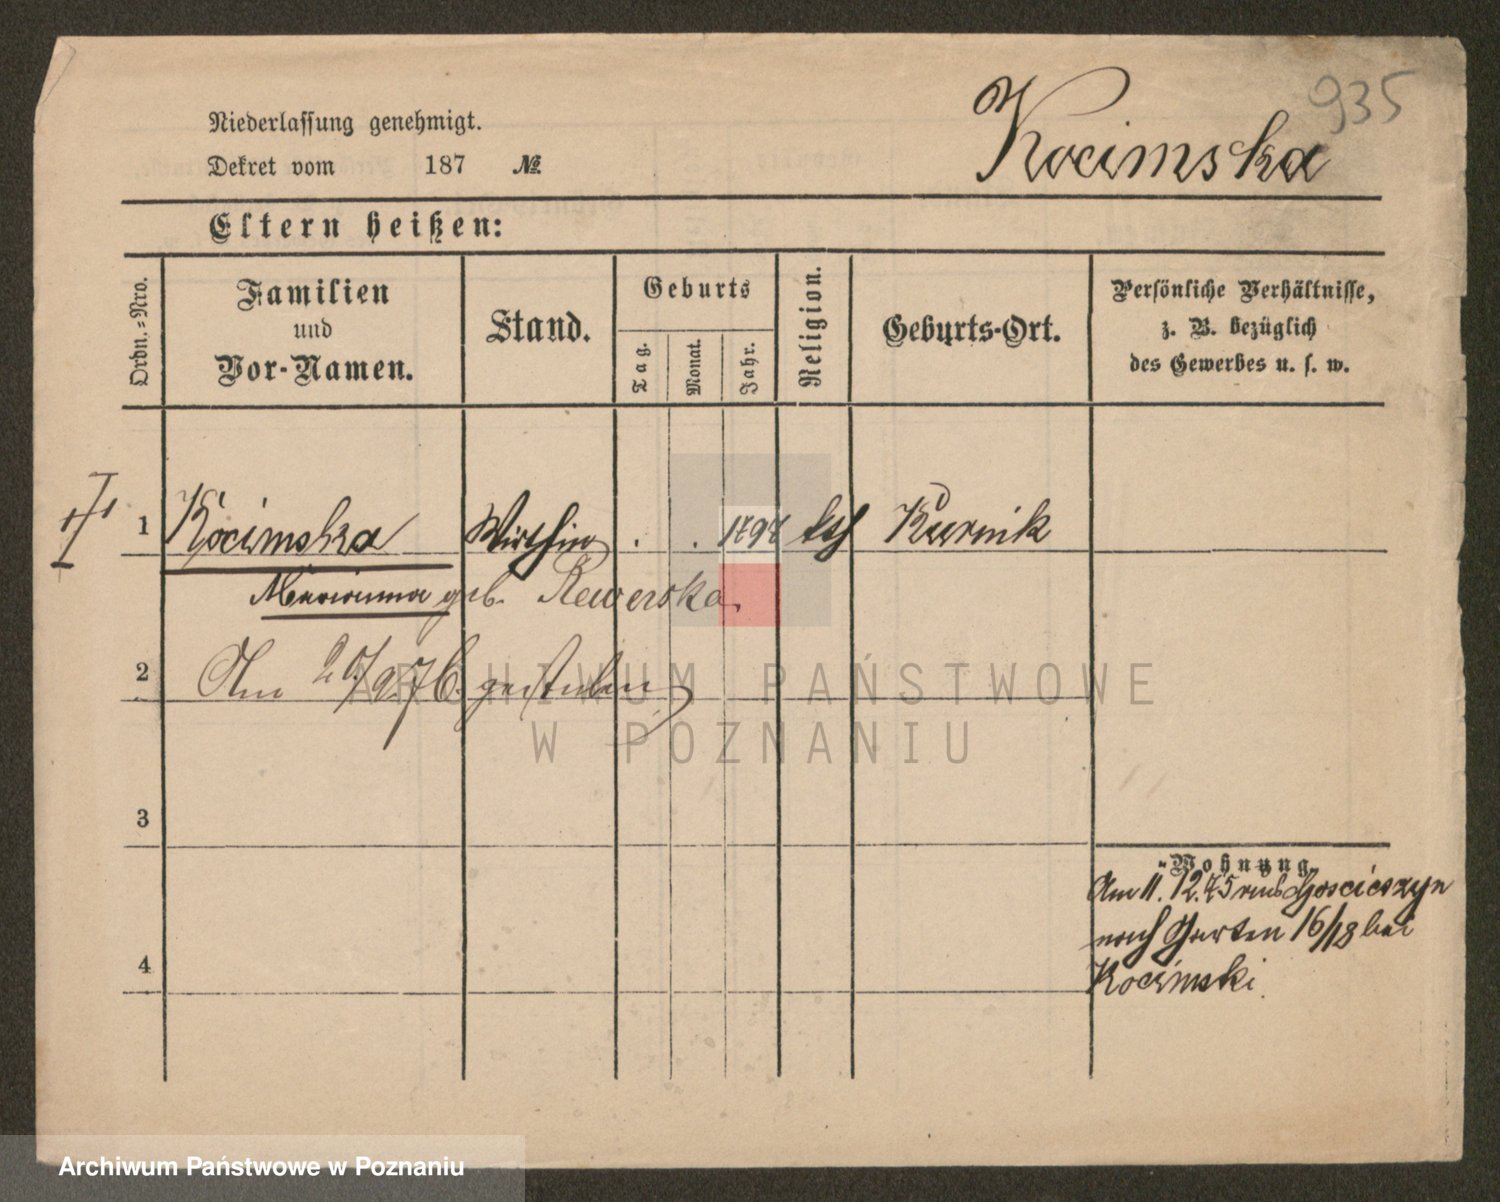 935
Niederlassung genehmigt.
Kocimska
Dekret vom 187 №
Eltern heißen:
Ordn.=Nro.
Familien
und
Vor-Namen.
Stand.
Geburts
Tag.
Monat.
Jahr.
Religion.
Geburts-Ort.
Persönliche Verhältnisse,
z. B. bezüglich
des Gewerbes u. s. w.
1 Kocimska Wirthin . . 1797 kth Kurnik
Marianna geb. Rewerska
2 Am 20/9 76. gestorben
3
Wohnung
Am 11. 12. 75 von Goscieszyn
nach Garten 16/18 bei
4
Kocimski.
ARCHIWUM PAŃSTWOWE
W POZNANIU
Archiwum Państwowe w Poznaniu